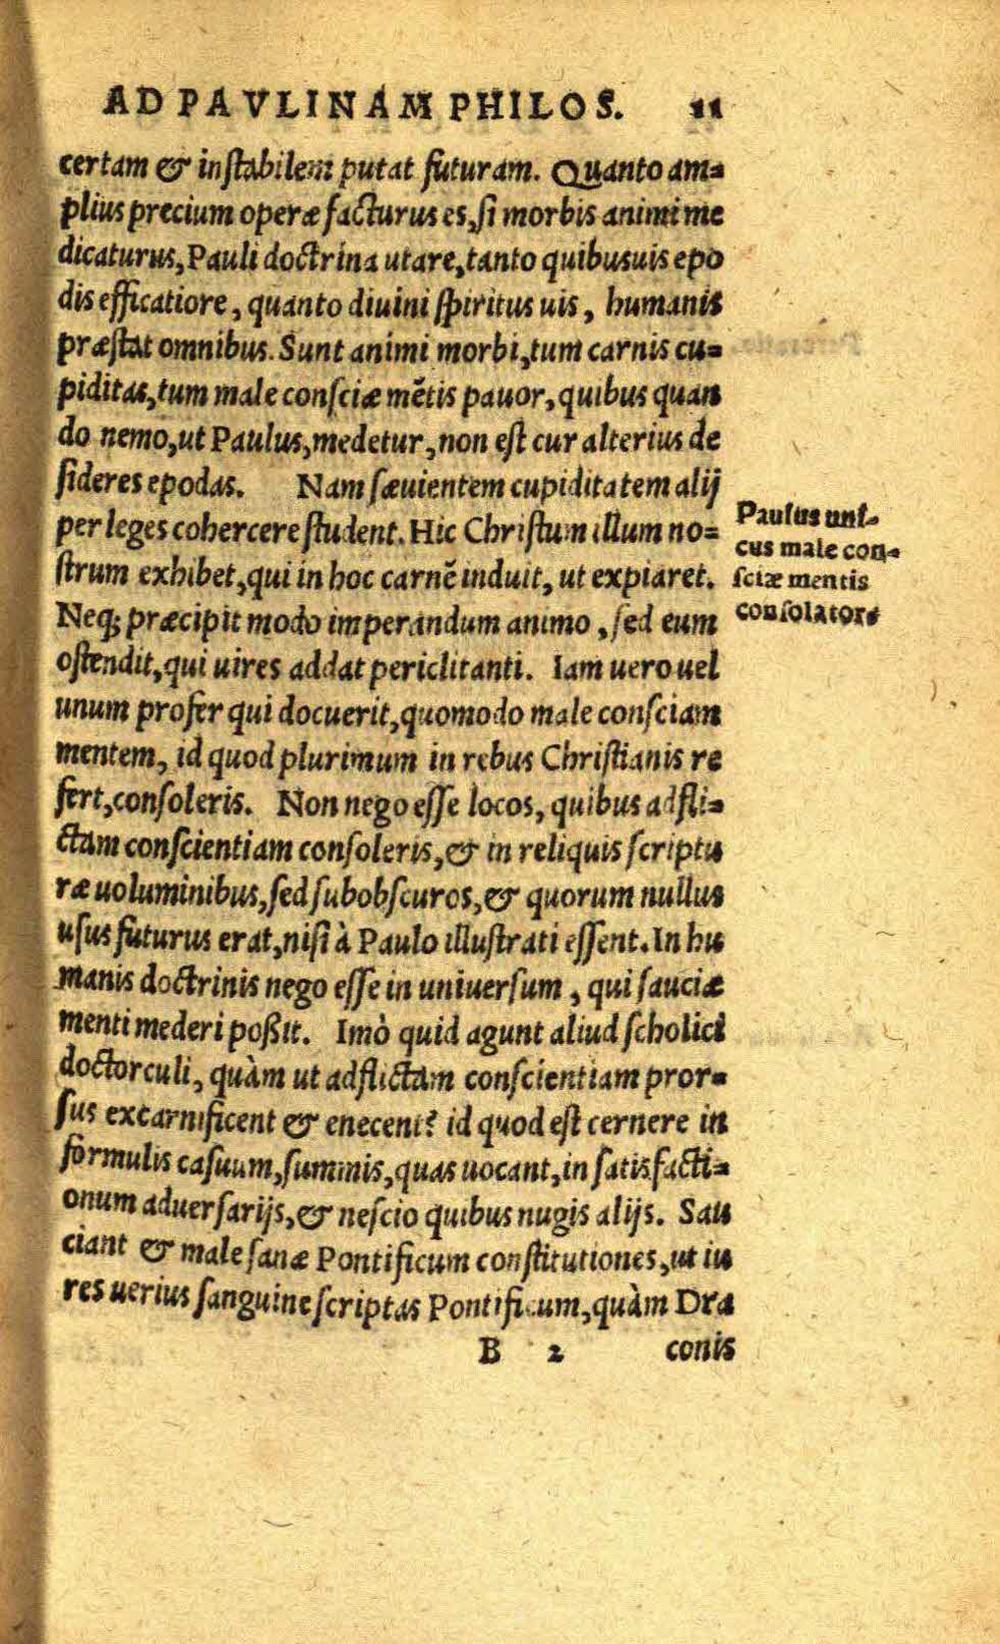 AD PAVLINAM PHILOS. 11
certam & instabilem putat futuram. Quanto am=
plius precium operæ facturus es, si morbis animi me
dicaturus, Pauli doctrina utare, tanto quibusuis epo
dis efficatiore, quanto diuini spiritus uis, humanis
præstat omnibus. Sunt animi morbi, tum carnis cu=
piditas, tum male consciæ mẽtis pauor, quibus quan
do nemo, ut Paulus, medetur, non est cur alterius de
sideres epodas. Nam sæuientem cupiditatem alij
per leges cohercere student. Hic Christum illum no=
strum exhibet, qui in hoc carnẽ induit, ut expiaret.
Neq; præcipit modo imperandum animo, sed eum
ostendit, qui uires addat periclitanti. Iam uero uel
unum profer qui docuerit, quomodo male consciam
mentem, id quod plurimum in rebus Christianis re
fert, consoleris. Non nego esse locos, quibus adfli=
ctam conscientiam consoleris, & in reliquis scriptu
ræ uoluminibus, sed subobscuros, & quorum nullus
usus futurus erat, nisi à Paulo illustrati essent. In hu
manis doctrinis nego esse in uniuersum, qui sauciæ
menti mederi poßit. Imò quid agunt aliud scholici
doctorculi, quàm ut adflictam conscientiam pror=
sus excarnificent & enecent? id quod est cernere in
formulis casuum, summis, quas uocant, in satisfacti=
onum aduersarijs, & nescio quibus nugis alijs. Sau
ciant & male sanæ Pontificum constitutiones, ut iu
res uerius sanguine scriptas Pontificum, quàm Dra
B 2 conis
Paulus uni-
cus male con-
sciæ mentis
consolator